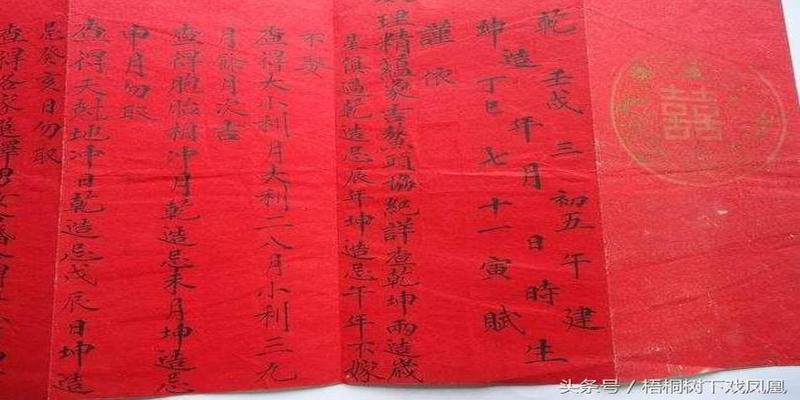 囍
乾壬戌三初五午建
造年月日時生
坤丁巳七十一寅賦
謹依
理精蘊選吉鰲頭協紀詳查乾坤兩造歲
星俱過乾造忌辰年坤造忌午年不嫁
不娶
查得大小利月大利二八月小利三九
月餘月次吉
查得胞胎相冲月乾造忌未月坤造忌
申月勿取
查得天尅地冲日乾造忌戊辰日坤造
忌癸亥日勿取
查得各家選擇男女合婚
头条号／梧桐树下戏凤凰